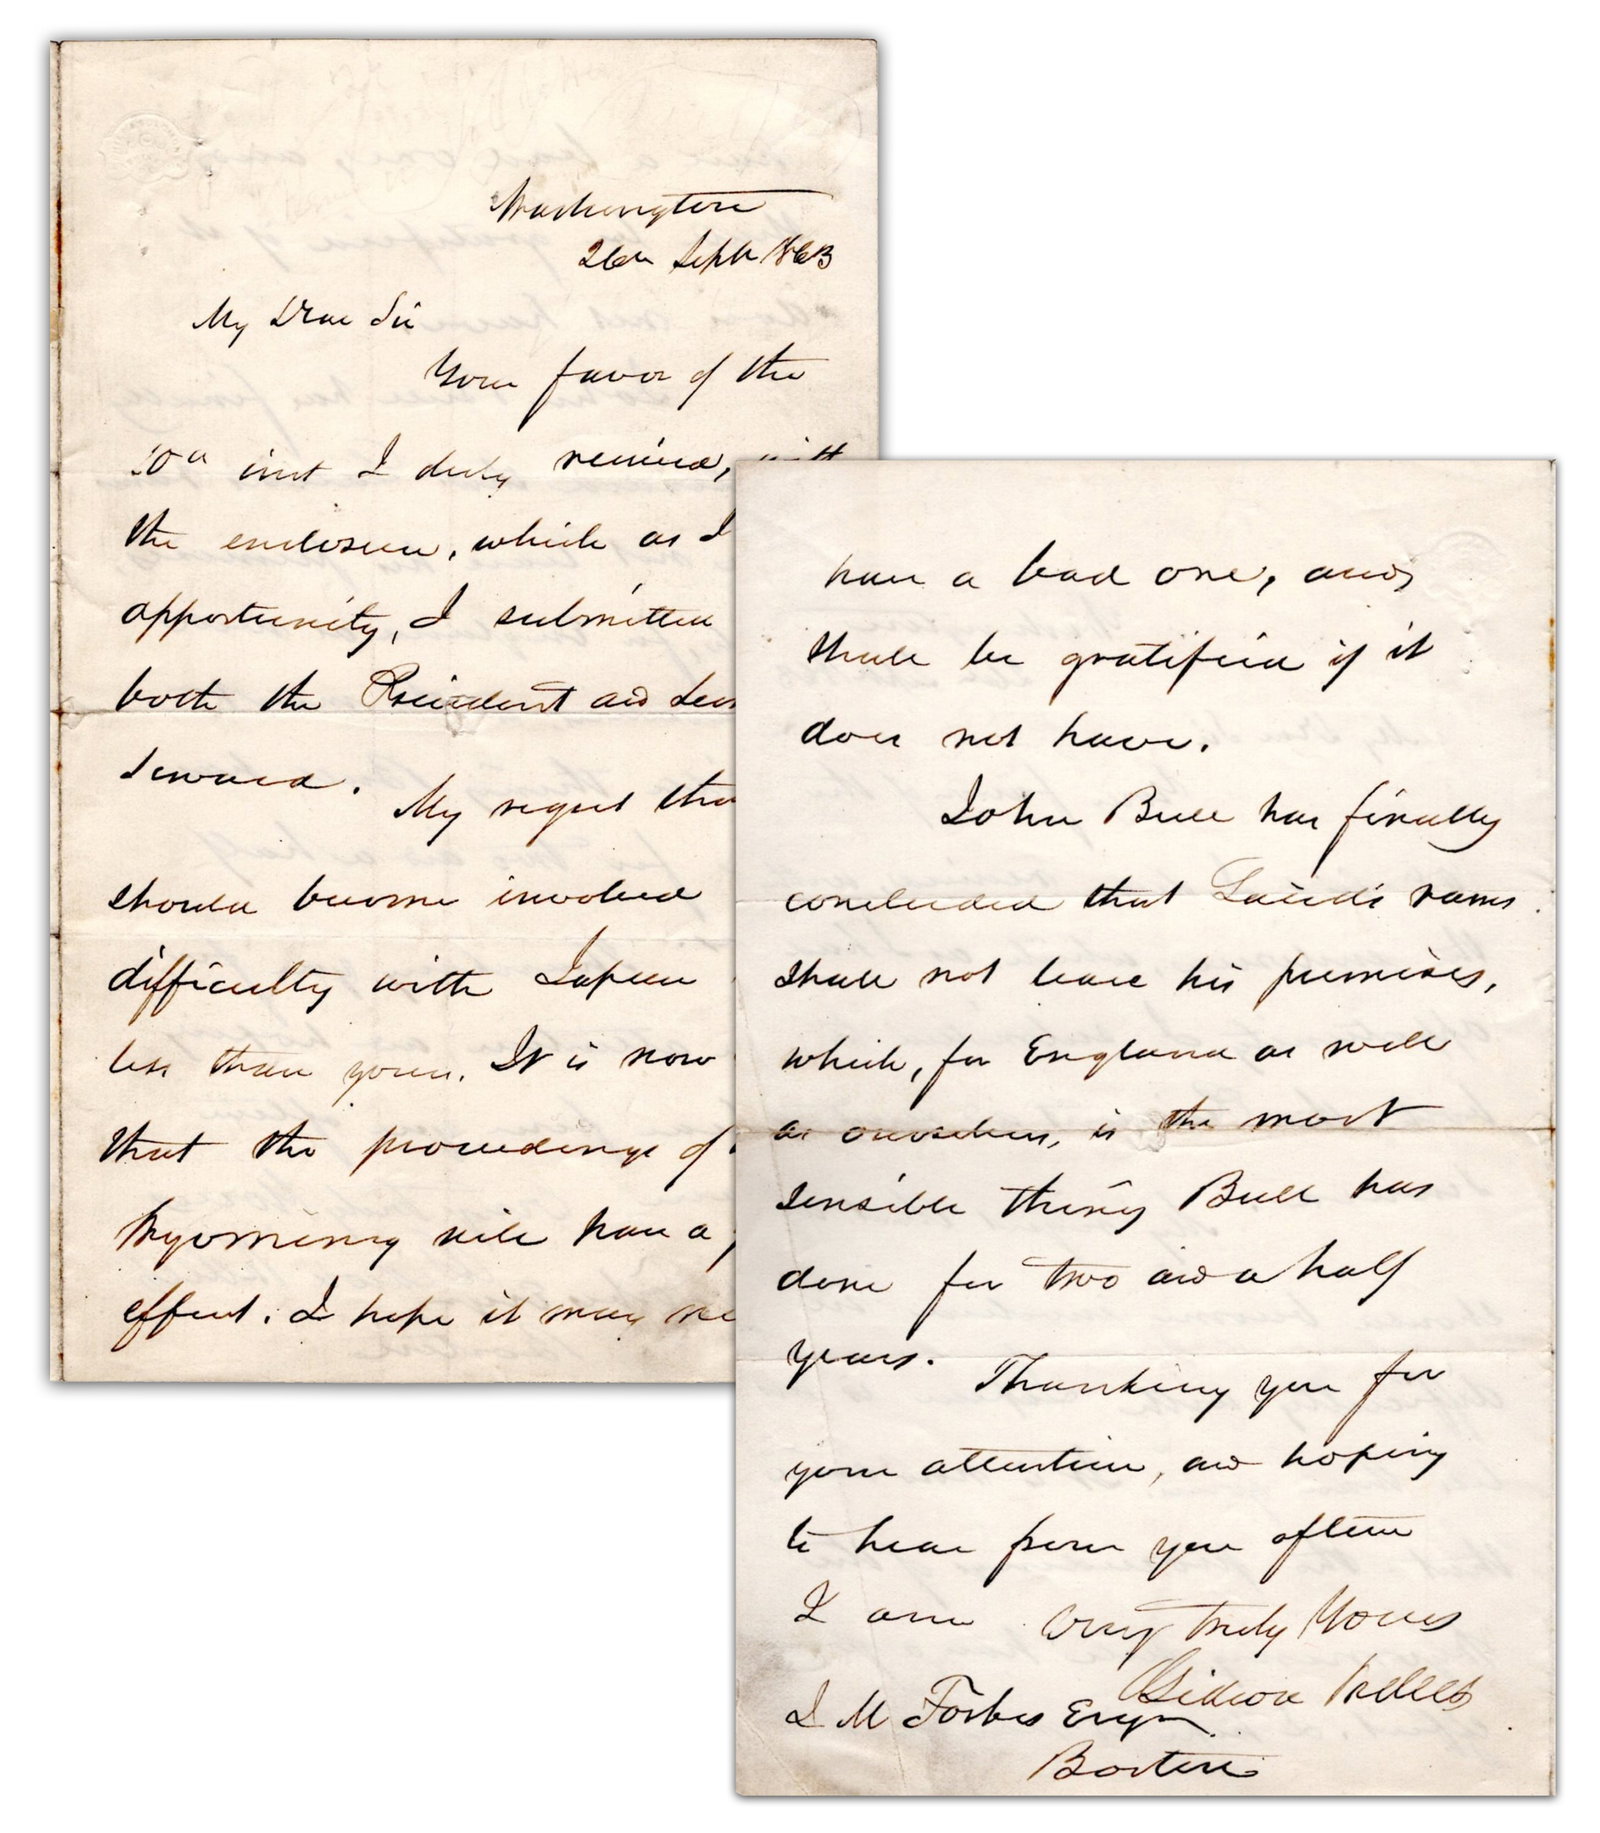 Washington
26th Sept 1863
My Dear Sir
Your favor of the
10th inst I duly received, with
the enclosure, which as I
opportunity, I submitted
both the President and
Seward.
My regret
should become involved
difficulty with Japan
less than yours. It is now
that the proceedings of
Wyoming will have a
effect. I hope it may
have a bad one, and
shall be gratified if it
does not have.
John Bull has finally
concluded that Laird's rams
shall not leave his premises,
which, for England as well
as ourselves, is the most
sensible thing Bull has
done for two and a half
years.
Thanking you for
your attention, and hoping
to hear from you often
I am Very truly Yours
Gideon Welles
J M Forbes Esqr
Boston